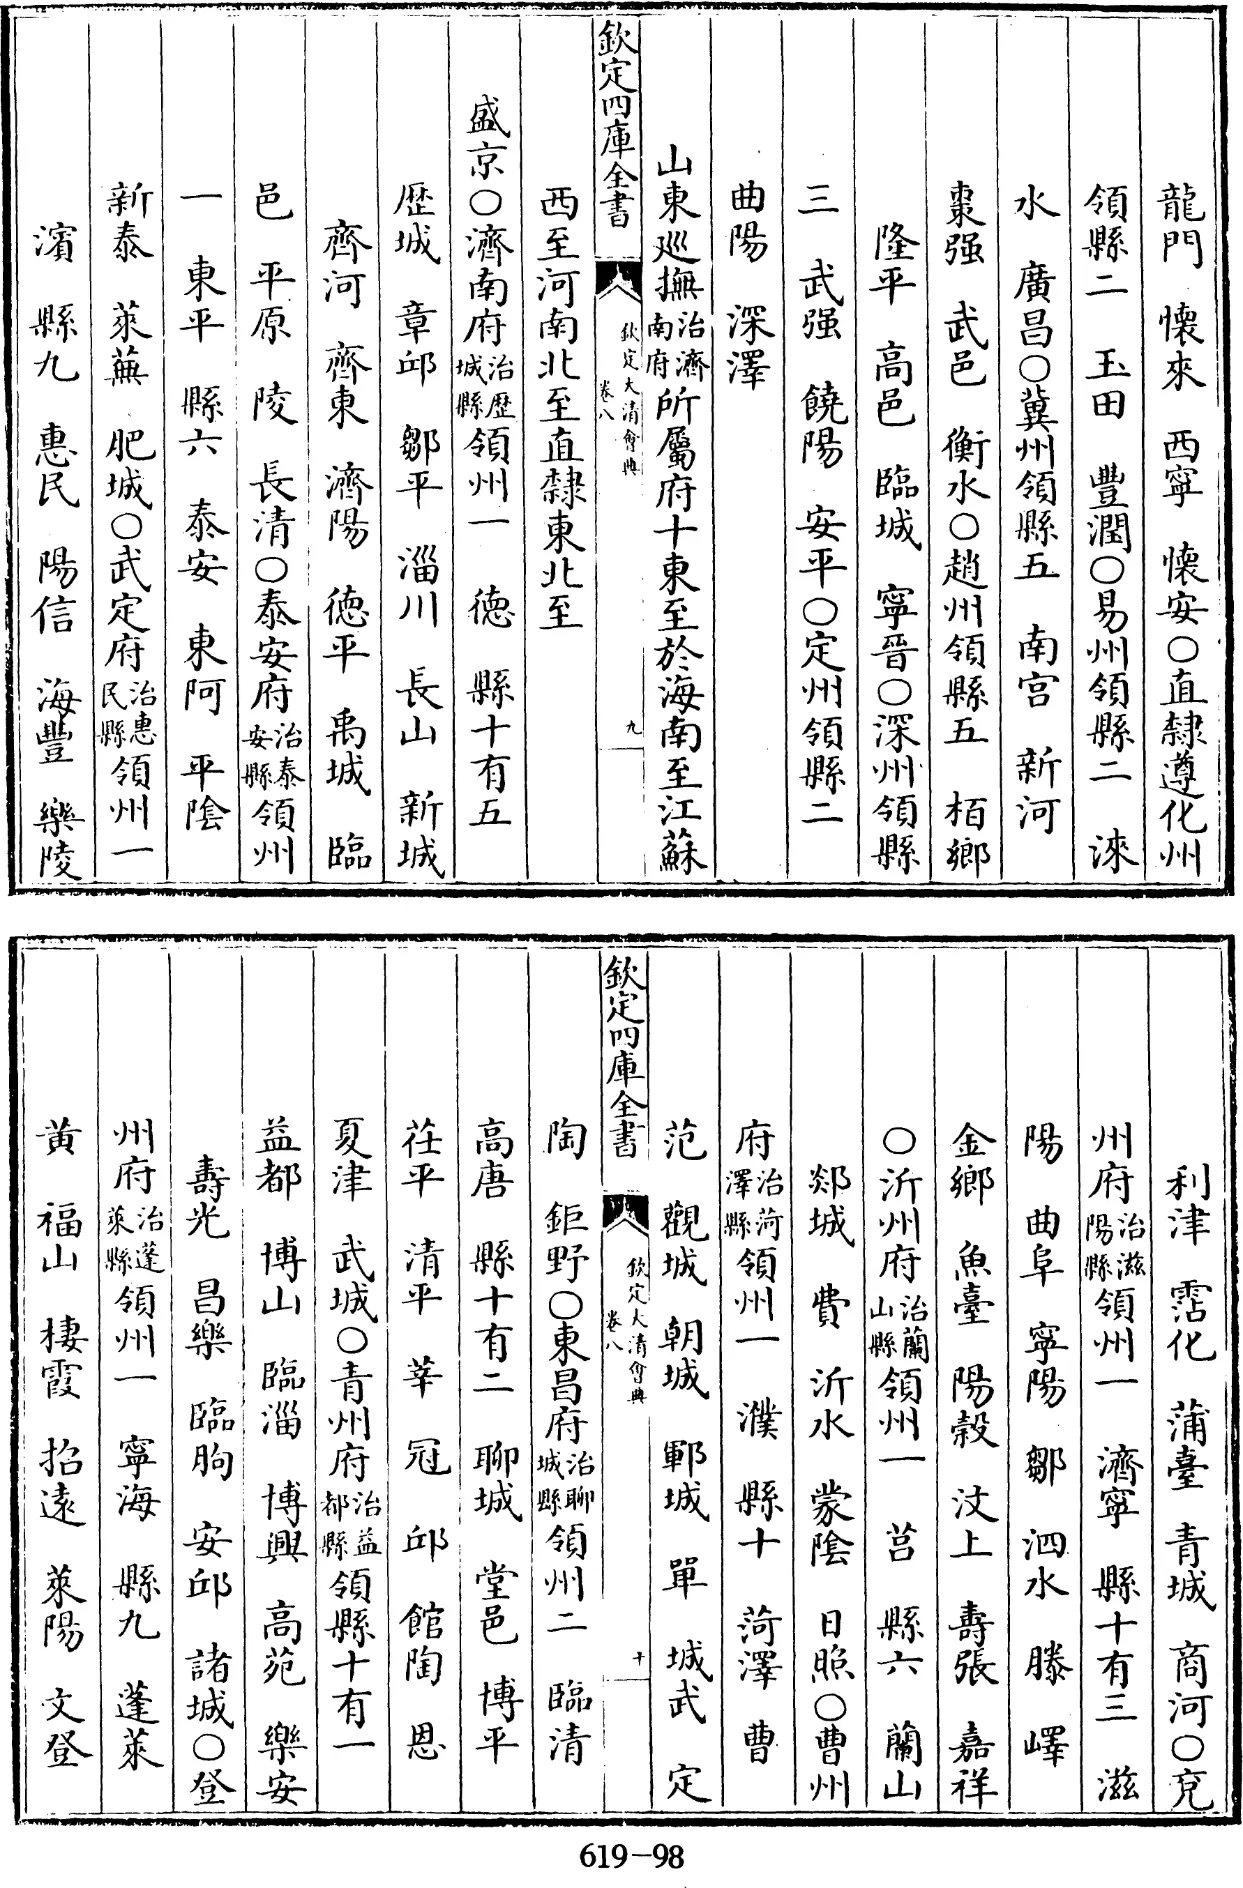 龍門 懷來 西寧 懷安〇直隸遵化州
領縣二 玉田 豐潤〇易州領縣二 淶
水 廣昌〇冀州領縣五 南宮 新河
棗强 武邑 衡水〇趙州領縣五 栢鄉
隆平 高邑 臨城 寧晉〇深州領縣
三 武强 饒陽 安平〇定州領縣二
曲陽 深澤
山東巡撫治濟南府所屬府十東至於海南至江蘇
欽定四庫全書 欽定大清會典 卷八 九
西至河南北至直隸東北至
盛京〇濟南府治歷城縣領州一 德 縣十有五
歷城 章邱 鄒平 淄川 長山 新城
齊河 齊東 濟陽 德平 禹城 臨
邑 平原 陵 長清〇泰安府治泰安縣領州
一 東平 縣六 泰安 東阿 平陰
新泰 萊蕪 肥城〇武定府治惠民縣領州一
濱 縣九 惠民 陽信 海豐 樂陵
利津 霑化 蒲臺 青城 商河〇兗
州府治滋陽縣領州一 濟寧 縣十有三 滋
陽 曲阜 寧陽 鄒 泗水 滕 嶧
金鄉 魚臺 陽穀 汶上 壽張 嘉祥
〇沂州府治蘭山縣領州一 莒 縣六 蘭山
郯城 費 沂水 蒙陰 日照〇曹州
府治菏澤縣領州一 濮 縣十 菏澤 曹
范 觀城 朝城 鄆城 單 城武 定
欽定四庫全書 欽定大清會典 卷八 十
陶 鉅野〇東昌府治聊城縣領州二 臨清
高唐 縣十有二 聊城 堂邑 博平
茌平 清平 莘 冠 邱 館陶 恩
夏津 武城〇青州府治益都縣領縣十有一
益都 博山 臨淄 博興 高苑 樂安
壽光 昌樂 臨朐 安邱 諸城〇登
州府治蓬萊縣領州一 寧海 縣九 蓬萊
黄 福山 棲霞 招遠 萊陽 文登
619-98